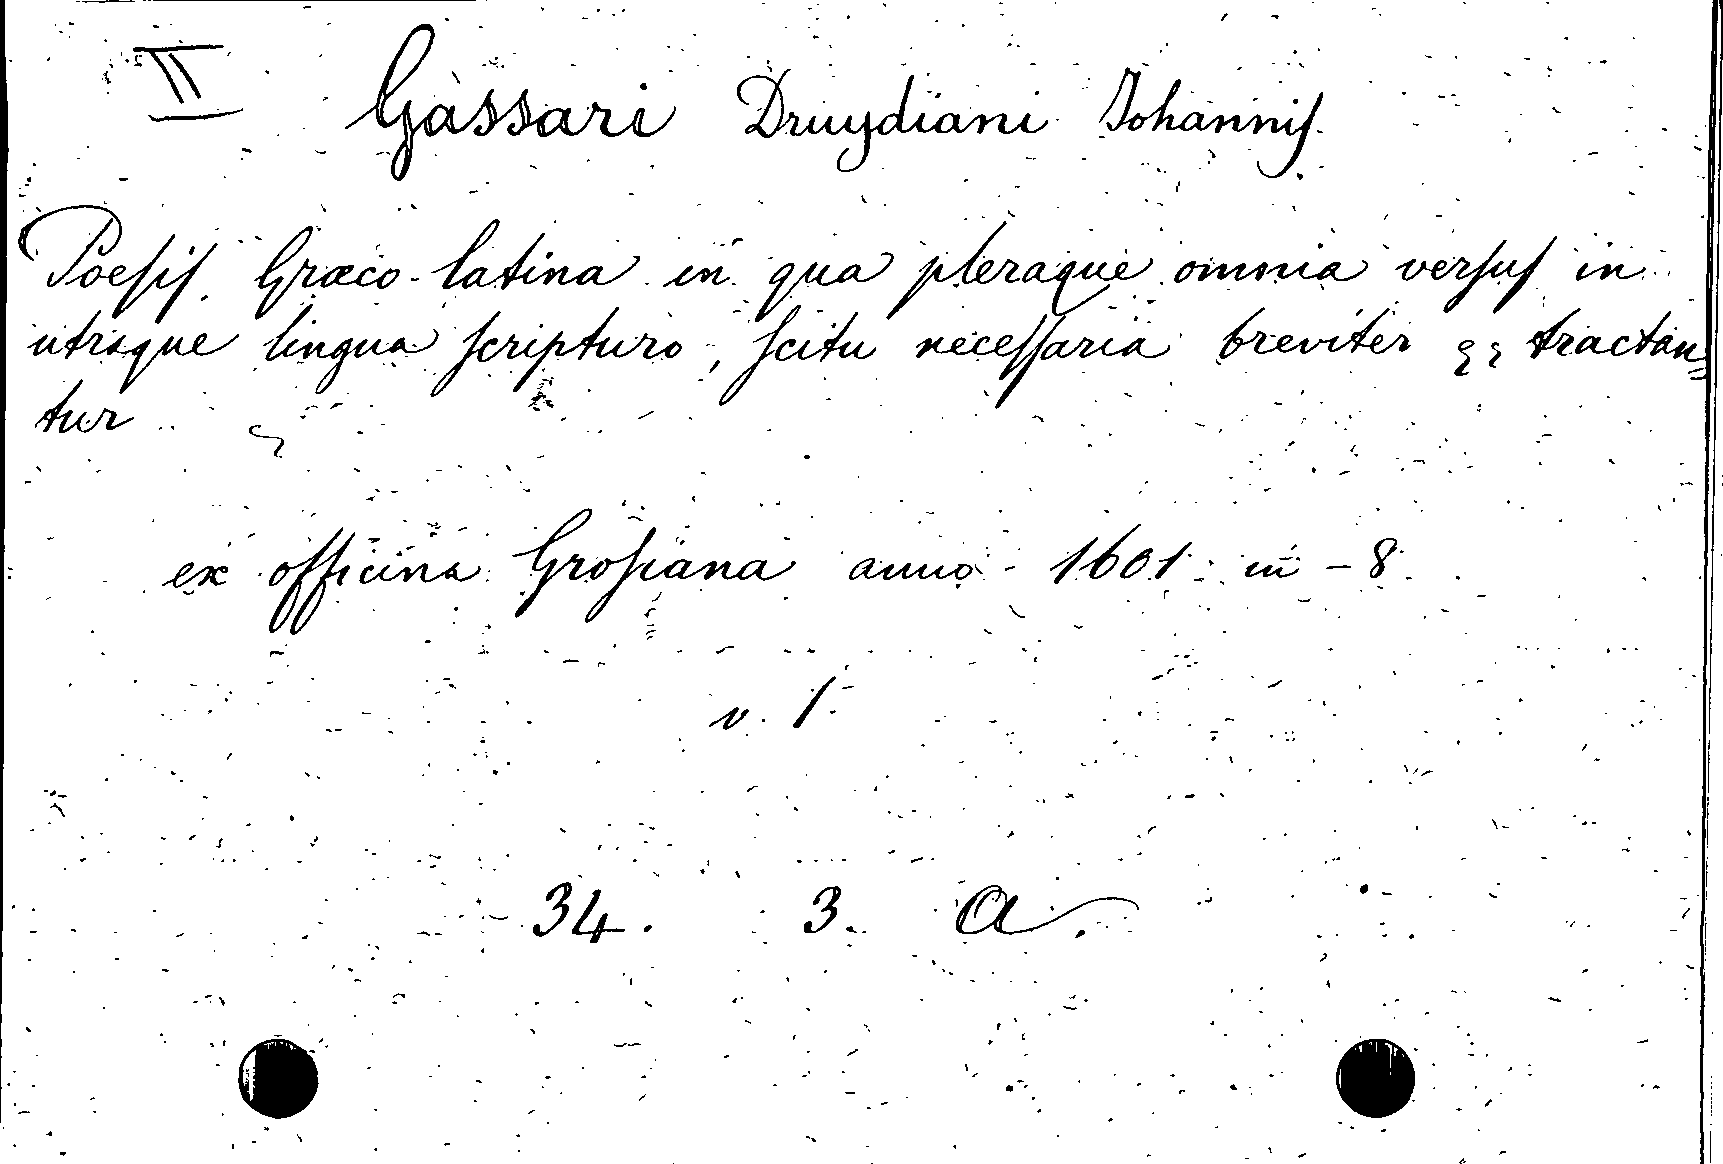 II Gassari Druydiani Johannis.
Poesis. Græco-latina in qua pleraque omnia versus in
utraque lingua scripturo, scitu necessaria breviter tractan=
tur
ex officina Grosiana anno 1601 in-8.
v. 1.
34. 3. a.